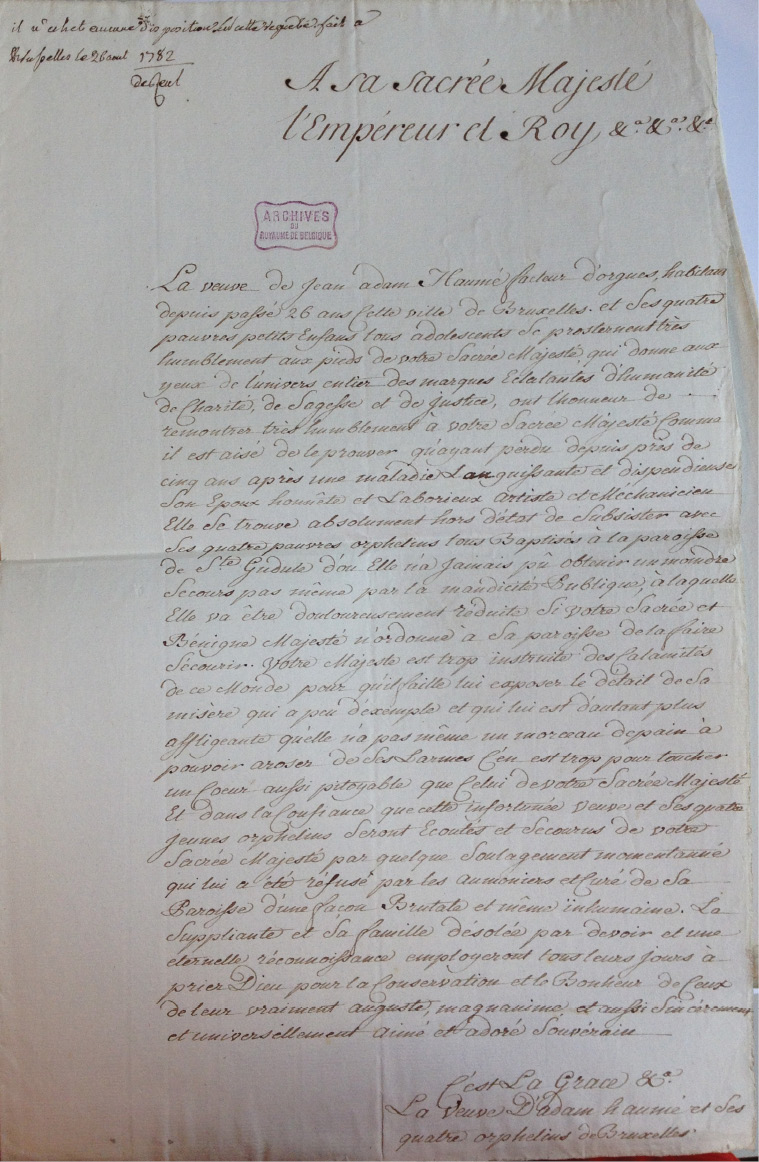 il n'echet aucune disposition sur cette requête fait a
Bruxelles le 26 aout 1782
de Reul
A sa sacrée Majesté
l'Empéreur et Roy &a. &a. &a
ARCHIVES
DU
ROYAUME DE BELGIQUE
La veuve de Jean adam Haumé facteur d'orgues, habitant
depuis passé 26 ans Cette ville de Bruxelles. et Ses quatre
pauvres petits Enfans tous adolescents Se prosternent très
humblement aux pieds de votre Sacrée Majesté, qui donne aux
yeux de l'univers entier des marques Eclatantes d'humanité
de Charité, de Sagesse et de Justice, ont lhonneur de
remontrer très humblement à votre Sacrée Majesté Comme
il est aisé de le prouver qu'ayant perdu depuis près de
cinq ans après une maladie Languissante et dispendieuse
Son Epoux honnête et Laborieux artiste et Méchanicien
Elle Se trouve absolument hors d'état de Subsister avec
Ses quatre pauvres orphelins tous Baptisés à la paroisse
de Ste. Gudule d'ou Elle n'a Jainais pû obtenir un moindre
Secours pas même par la mandicité Publique, a laquelle
Elle va être douloureusement réduite Si votre Sacrée et
Bénigne Majesté n'ordonne à Sa paroisse de la faire
Sécourir. Votre Majesté est trop instruite des Calamités
de ce Monde pour qu'il faille lui exposer le détail de Sa
misère qui a peu d'éxemple et qui lui est d'autant plus
affligeante qu'elle n'a pas même un morceau de pain à
pouvoir aroser de Ses Larmes C'en est trop pour toucher
un Coeur aussi pitoyable que Celui de votre Sacrée Majesté
Et dans la Confiance que cette infortunée veuve et Ses quatre
jeunes orphelins Seront Ecoutés et Secourus de votre
Sacrée Majesté par quelque Soulagement momentanné
qui lui a été réfusé par les aumoniers et Curé de Sa
Paroisse d'une façon Brutale et même inhumaine. La
Suppliante et Sa famille désolée par devoir et une
éternelle réconnoissance employeront tous leurs Jours à
prier Dieu pour la Conservation et le Bonheur de Ceux
de leur vraiment auguste, magnanime et aussi Sincérement
et universéllement aimé et adoré Souvérain
C'est La Grace &a.
La Veuve D'adam haumé et Ses
quatre orphelins de Bruxelles.